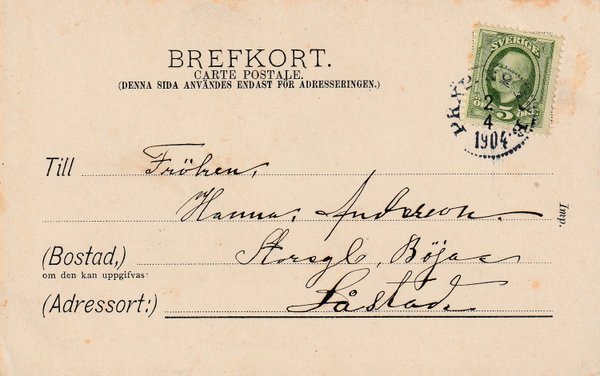 BREFKORT.
CARTE POSTALE.
(DENNA SIDA ANVÄNDES ENDAST FÖR ADRESSERINGEN.)
SVERIGE
5
2
4
1904
Till Fröken,
Hanna, Anderson.
Imp.
(Bostad,) Böjas
om den kan uppgifvas:
(Adressort:) Låstad